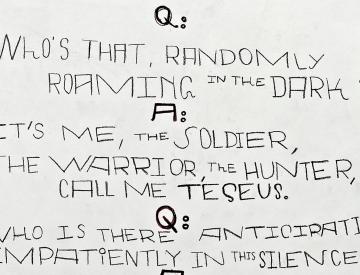 Q:
WHO'S THAT, RANDOMLY
ROAMING IN THE DARK
A:
IT'S ME, THE SOLDIER,
THE WARRIOR, THE HUNTER,
CALL ME TESEUS.
Q:
WHO IS THERE ANTICIPATI
IMPATIENTLY IN THIS SILENCE
A